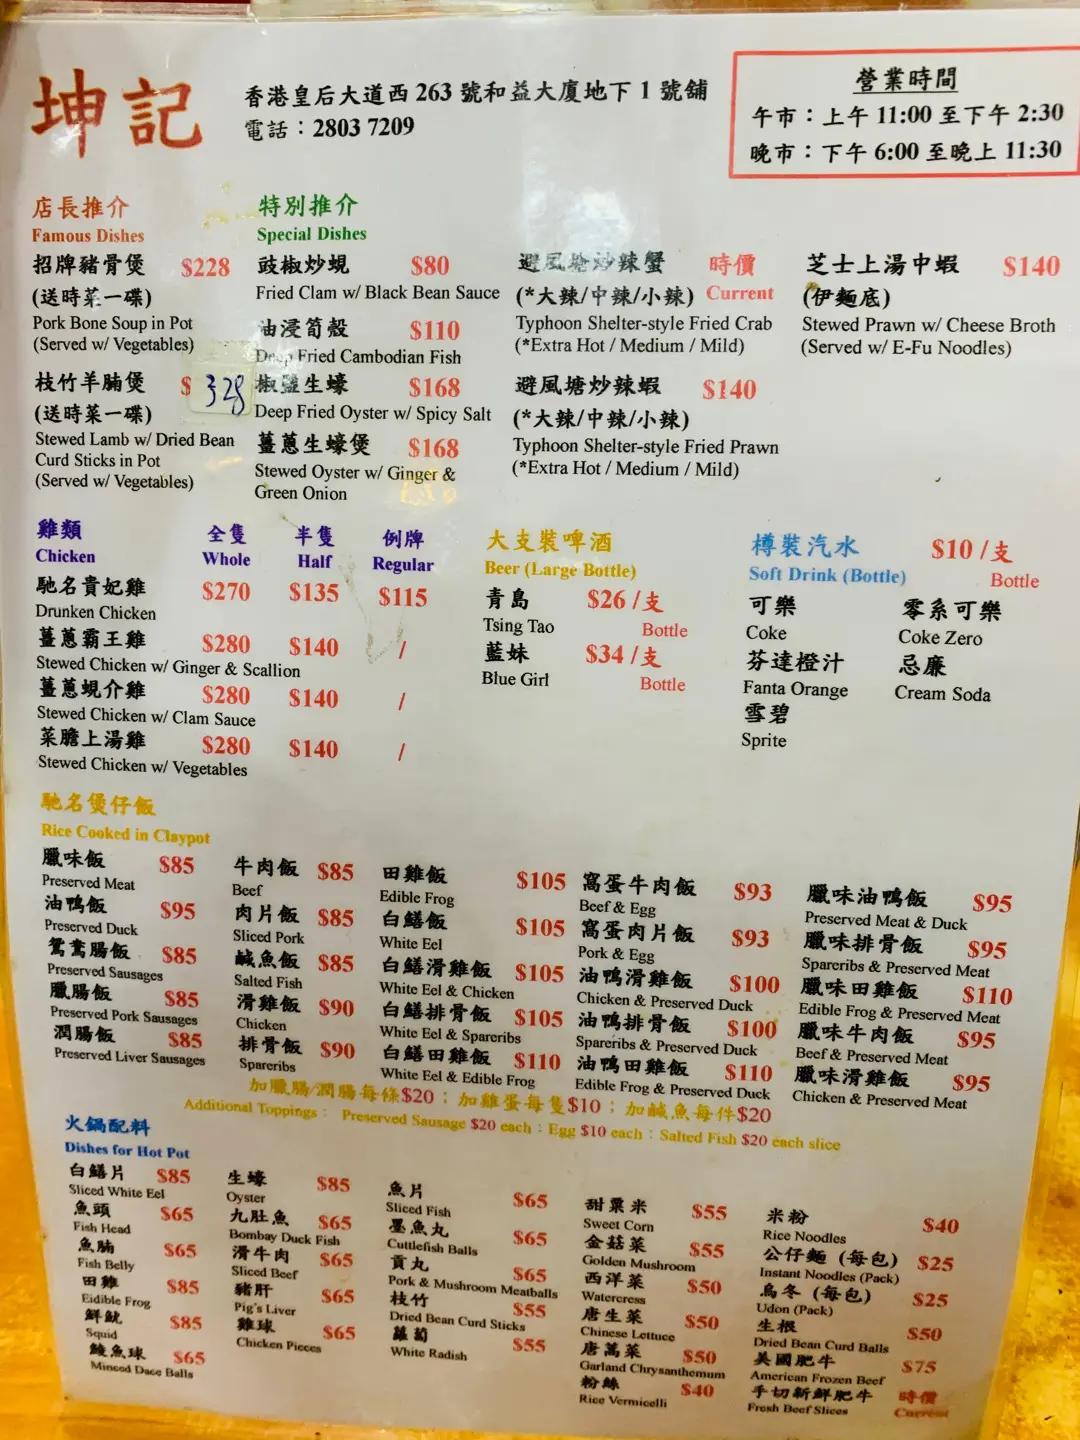 坤記
香港皇后大道西 263 號和益大廈地下 1 號舖
電話：2803 7209
營業時間
午市：上午 11:00 至下午 2:30
晚市：下午 6:00 至晚上 11:30
店長推介
Famous Dishes
招牌豬骨煲 $228
(送時菜一碟)
Pork Bone Soup in Pot
(Served w/ Vegetables)
枝竹羊腩煲 $ 328
(送時菜一碟)
Stewed Lamb w/ Dried Bean
Curd Sticks in Pot
(Served w/ Vegetables)
特別推介
Special Dishes
豉椒炒蜆 $80
Fried Clam w/ Black Bean Sauce
油浸筍殼 $110
Deep Fried Cambodian Fish
椒鹽生蠔 $168
Deep Fried Oyster w/ Spicy Salt
薑蔥生蠔煲 $168
Stewed Oyster w/ Ginger &
Green Onion
避風塘炒辣蟹 時價
(*大辣/中辣/小辣) Current
Typhoon Shelter-style Fried Crab
(*Extra Hot / Medium / Mild)
避風塘炒辣蝦 $140
(*大辣/中辣/小辣)
Typhoon Shelter-style Fried Prawn
(*Extra Hot / Medium / Mild)
芝士上湯中蝦 $140
(伊麵底)
Stewed Prawn w/ Cheese Broth
(Served w/ E-Fu Noodles)
雞類 全隻 半隻 例牌
Chicken Whole Half Regular
馳名貴妃雞 $270 $135 $115
Drunken Chicken
薑蔥霸王雞 $280 $140 /
Stewed Chicken w/ Ginger & Scallion
薑蔥蜆介雞 $280 $140 /
Stewed Chicken w/ Clam Sauce
菜膽上湯雞 $280 $140 /
Stewed Chicken w/ Vegetables
大支裝啤酒
Beer (Large Bottle)
青島 $26 /支
Tsing Tao Bottle
藍妹 $34 /支
Blue Girl Bottle
樽裝汽水 $10 /支
Soft Drink (Bottle) Bottle
可樂 零系可樂
Coke Coke Zero
芬達橙汁 忌廉
Fanta Orange Cream Soda
雪碧
Sprite
馳名煲仔飯
Rice Cooked in Claypot
臘味飯 $85
Preserved Meat
油鴨飯 $95
Preserved Duck
鴛鴦腸飯 $85
Preserved Sausages
臘腸飯 $85
Preserved Pork Sausages
潤腸飯 $85
Preserved Liver Sausages
牛肉飯 $85
Beef
肉片飯 $85
Sliced Pork
鹹魚飯 $85
Salted Fish
滑雞飯 $90
Chicken
排骨飯 $90
Spareribs
田雞飯 $105
Edible Frog
白鱔飯 $105
White Eel
白鱔滑雞飯 $105
White Eel & Chicken
白鱔排骨飯 $105
White Eel & Spareribs
白鱔田雞飯 $110
White Eel & Edible Frog
窩蛋牛肉飯 $93
Beef & Egg
窩蛋肉片飯 $93
Pork & Egg
油鴨滑雞飯 $100
Chicken & Preserved Duck
油鴨排骨飯 $100
Spareribs & Preserved Duck
油鴨田雞飯 $110
Edible Frog & Preserved Duck
臘味油鴨飯 $95
Preserved Meat & Duck
臘味排骨飯 $95
Spareribs & Preserved Meat
臘味田雞飯 $110
Edible Frog & Preserved Meat
臘味牛肉飯 $95
Beef & Preserved Meat
臘味滑雞飯 $95
Chicken & Preserved Meat
加臘腸/潤腸每條$20；加雞蛋每隻$10；加鹹魚每件$20
Additional Toppings： Preserved Sausage $20 each : Egg $10 each : Salted Fish $20 each slice
火鍋配料
Dishes for Hot Pot
白鱔片 $85
Sliced White Eel
魚頭 $65
Fish Head
魚腩 $65
Fish Belly
田雞 $85
Eidible Frog
鮮魷 $85
Squid
鯪魚球 $65
Minced Dace Balls
生蠔 $85
Oyster
九肚魚 $65
Bombay Duck Fish
滑牛肉 $65
Sliced Beef
豬肝 $65
Pig's Liver
雞球 $65
Chicken Pieces
魚片 $65
Sliced Fish
墨魚丸 $65
Cuttlefish Balls
貢丸 $65
Pork & Mushroom Meatballs
枝竹 $55
Dried Bean Curd Sticks
蘿蔔 $55
White Radish
甜粟米 $55
Sweet Corn
金菇菜 $55
Golden Mushroom
西洋菜 $50
Watercress
唐生菜 $50
Chinese Lettuce
唐萬菜 $50
Garland Chrysanthemum
粉絲 $40
Rice Vermicelli
米粉 $40
Rice Noodles
公仔麵 (每包) $25
Instant Noodles (Pack)
烏冬 (每包) $25
Udon (Pack)
生根 $50
Dried Bean Curd Balls
美國肥牛 $75
American Frozen Beef
手切新鮮肥牛 時價
Fresh Beef Slices Current